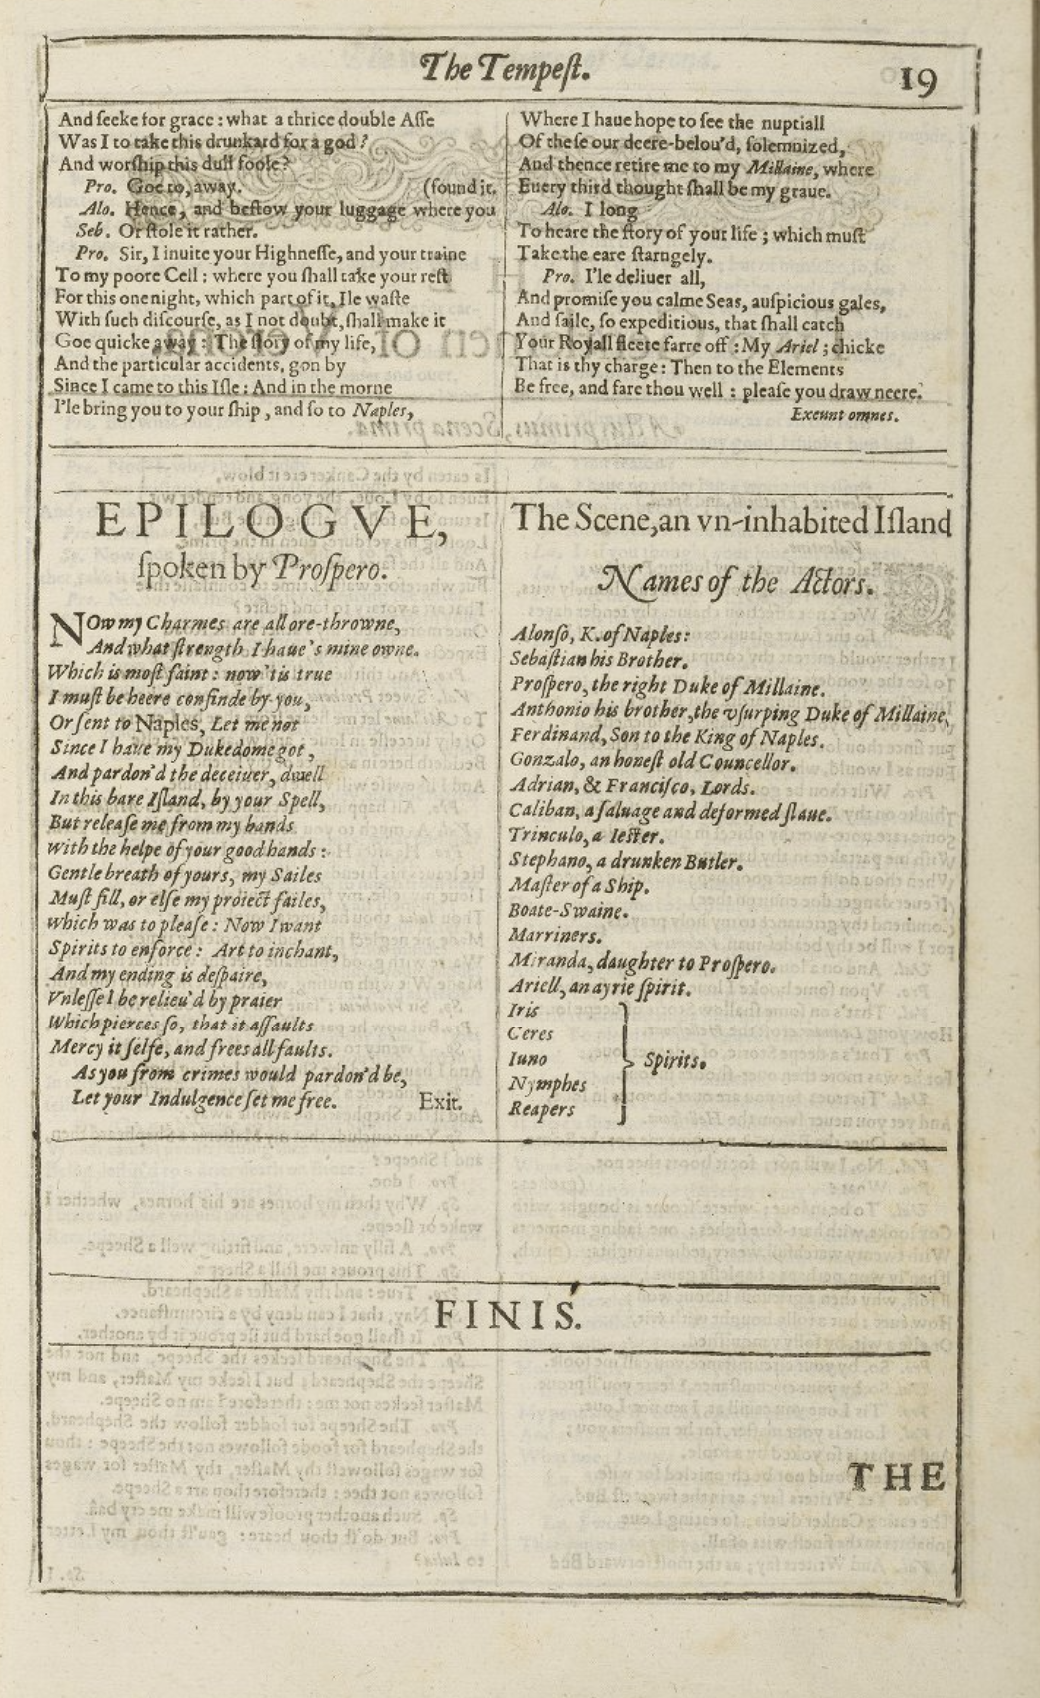 The Tempeſt.
19
And ſeeke for grace: what a thrice double Aſſe
Was I to take this drunkard for a god?
And worſhip this dull foole?
Pro. Goe to, away.
(found it.
Alo. Hence, and beſtow your luggage where you
Seb. Or ſtole it rather.
Pro. Sir, I inuite your Highneſſe, and your traine
To my poore Cell: where you ſhall take your reſt
For this one night, which part of it, Ile waſte
With ſuch diſcourſe, as I not doubt, ſhall make it
Goe quicke away: The ſtory of my life,
And the particular accidents, gon by
Since I came to this Iſle: And in the morne
I'le bring you to your ſhip, and ſo to Naples,
Where I haue hope to ſee the nuptiall
Of theſe our deere-belou'd, ſolemnized,
And thence retire me to my Millaine, where
Euery third thought ſhall be my graue.
Alo. I long
To heare the ſtory of your life; which muſt
Take the eare ſtarngely.
Pro. I'le deliuer all,
And promiſe you calme Seas, auſpicious gales,
And ſaile, ſo expeditious, that ſhall catch
Your Royall fleete farre off: My Ariel; chicke
That is thy charge: Then to the Elements
Be free, and fare thou well: pleaſe you draw neere.
Exeunt omnes.
EPILOGVE,
ſpoken by Proſpero.
NOw my Charmes are all ore-throwne,
And what ſtrength I haue's mine owne.
Which is moſt faint: now 'tis true
I muſt be heere confinde by you,
Or ſent to Naples, Let me not
Since I haue my Dukedome got,
And pardon'd the deceiuer, dwell
In this bare Iſland, by your Spell,
But releaſe me from my bands
With the helpe of your good hands:
Gentle breath of yours, my Sailes
Muſt fill, or elſe my proiect failes,
Which was to pleaſe: Now I want
Spirits to enforce: Art to inchant,
And my ending is deſpaire,
Vnleſſe I be relieu'd by praier
Which pierces ſo, that it aſſaults
Mercy it ſelfe, and frees all faults.
As you from crimes would pardon'd be,
Let your Indulgence ſet me free.
Exit.
The Scene, an vn-inhabited Iſland
Names of the Actors.
Alonſo, K. of Naples:
Sebaſtian his Brother.
Proſpero, the right Duke of Millaine.
Anthonio his brother, the vſurping Duke of Millaine,
Ferdinand, Son to the King of Naples.
Gonzalo, an honeſt old Councellor.
Adrian, & Franciſco, Lords.
Caliban, a ſaluage and deformed ſlaue.
Trinculo, a Ieſter.
Stephano, a drunken Butler.
Maſter of a Ship.
Boate-Swaine.
Marriners.
Miranda, daughter to Proſpero.
Ariell, an ayrie ſpirit.
Iris
Ceres
Iuno
Nymphes
Reapers
Spirits.
FINIS.
THE